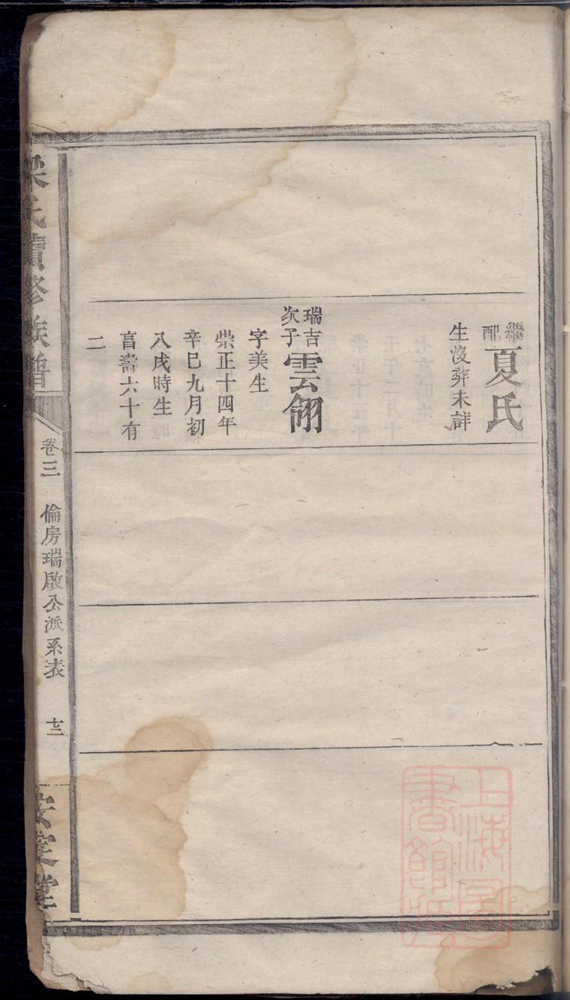 繼配夏氏
生沒葬未詳
瑞吉次子雲翎
字美生
崇正十四年
辛巳九月初
八戌時生
享壽六十有
二
梁氏續修族譜
卷三
倫房瑞啟公派系表
十三
安定堂
上海圖書館藏